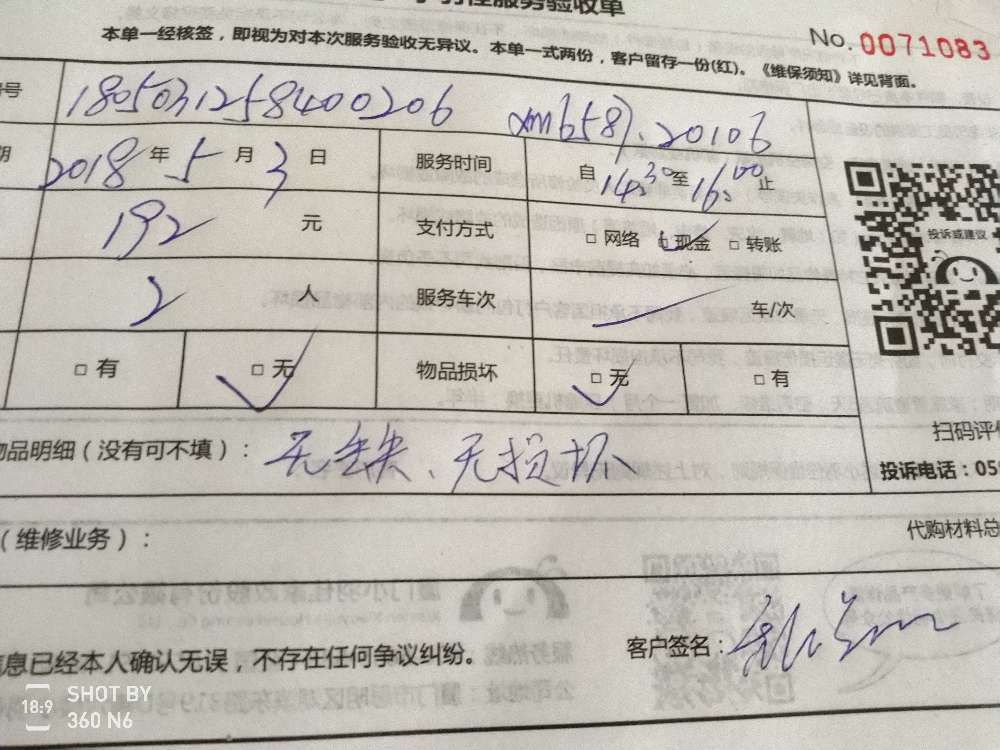 服务验收单
本单一经核签，即视为对本次服务验收无异议。本单一式两份，客户留存一份(红)。《维保须知》详见背面。
No. 0071083
号 1805031258400206
2018 年 5 月 3 日 服务时间 自 14:30 至 16:00 止
192 元 支付方式 □ 网络 □ 现金 □ 转账
投诉或建议
2 人 服务车次 车/次
□ 有 □ 无 物品损坏 □ 无 □ 有
扫码评
物品明细（没有可不填）： 无丢失、无损坏
投诉电话：05
（维修业务）：
代购材料总
息已经本人确认无误，不存在任何争议纠纷。 客户签名：
SHOT BY
18:9
360 N6